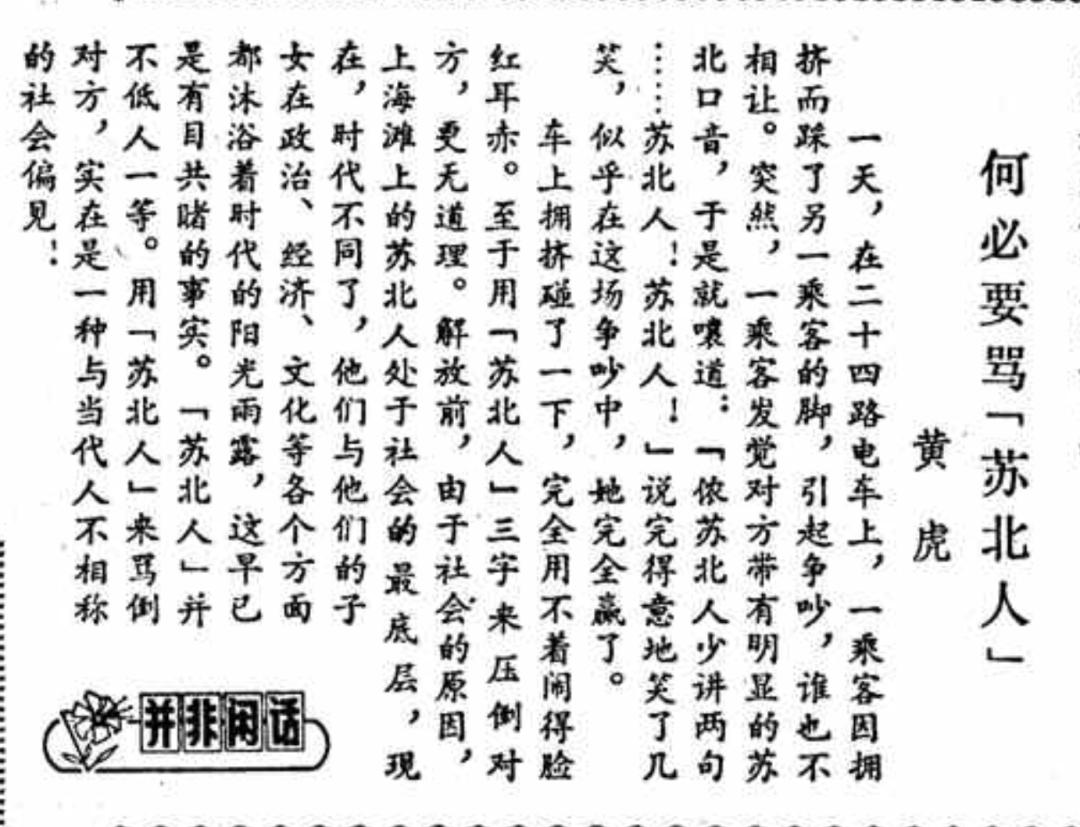 何必要骂「苏北人」
黄虎
一天，在二十四路电车上，一乘客因拥
挤而踩了另一乘客的脚，引起争吵，谁也不
相让。突然，一乘客发觉对方带有明显的苏
北口音，于是就嚷道：「侬苏北人少讲两句
……苏北人！苏北人！」说完得意地笑了几
笑，似乎在这场争吵中，她完全赢了。
车上拥挤碰了一下，完全用不着闹得脸
红耳赤。至于用「苏北人」三字来压倒对
方，更无道理。解放前，由于社会的原因，
上海滩上的苏北人处于社会的最底层，现
在，时代不同了，他们与他们的子
女在政治、经济、文化等各个方面
都沐浴着时代的阳光雨露，这早已
是有目共睹的事实。「苏北人」并
不低人一等。用「苏北人」来骂倒
对方，实在是一种与当代人不相称
的社会偏见！
并非闲话